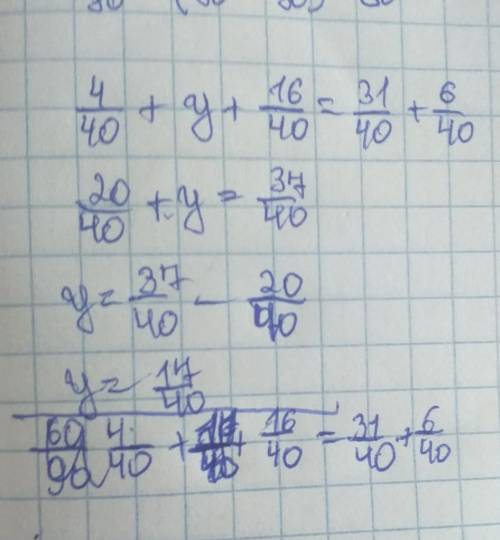 4/40 + y + 16/40 = 31/40 + 6/40
20/40 + y = 37/40
y = 37/40 - 20/40
y = 17/40
60/90 4/40 + 17/40 + 16/40 = 31/40 + 6/40